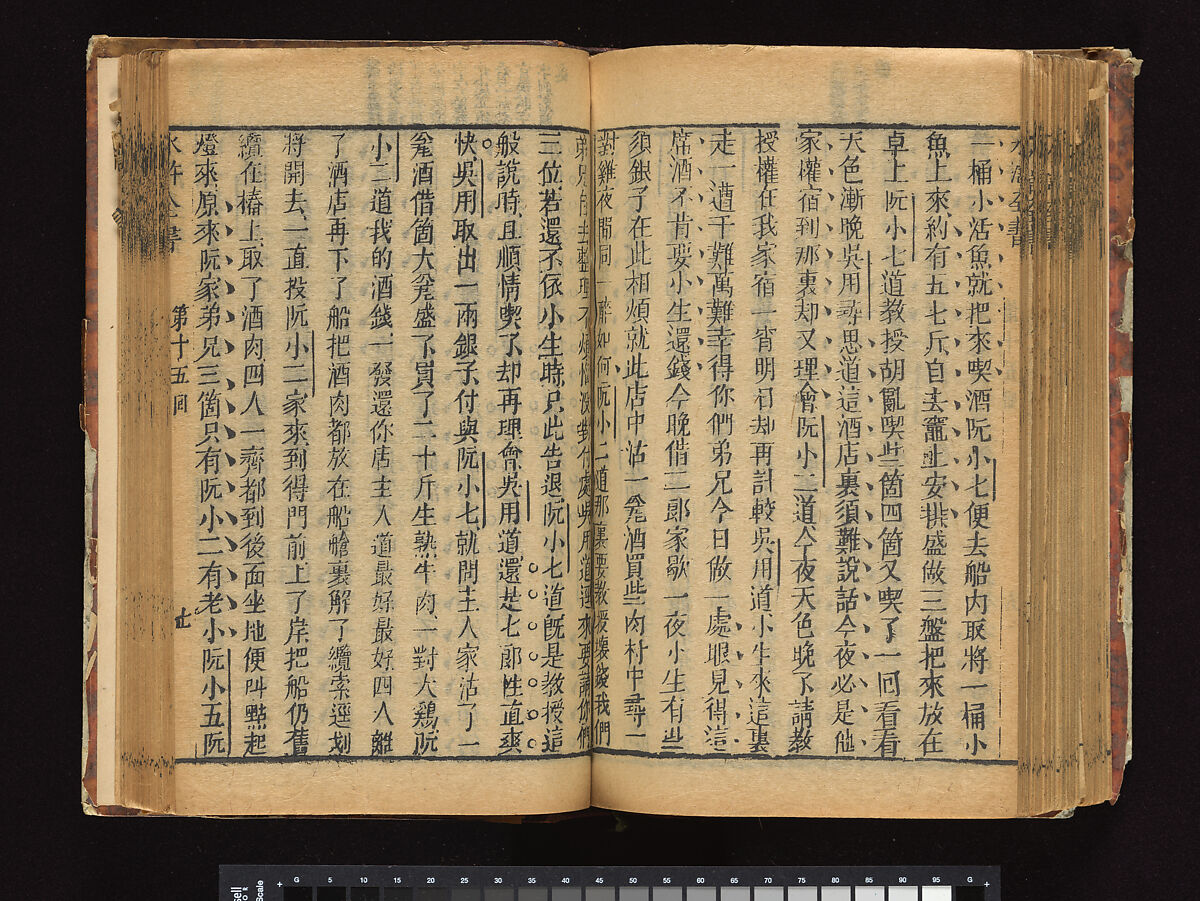 一桶小活魚就把來喫酒阮小七便去船內取將一桶小
魚上來約有五七斤自去竈上安排盛做三盤把來放在
卓上阮小七道教授胡亂喫些箇四箇又喫了一回看看
天色漸晚吳用尋思道這酒店裏須難說話今夜必是他
家權宿到那裏却又理會阮小二道今夜天色晚了請教
授權在我家宿一宵明日却再計較吳用道小生來這裏
走一遭千難萬難幸得你們弟兄今日做一處眼見得這
席酒不肯要小生還錢今晚借二郎家歇一夜小生有些
須銀子在此相煩就此店中沽一瓮酒買些肉村中尋一
對雞夜間同一醉如何阮小二道那裏要教授壞錢我們
弟兄自去整理不煩惱沒對付處吳用道逕來要請你們
三位若還不依小生時只此告退阮小七道既是教授這
般說時且順情喫了却再理會吳用道還是七郎性直爽
快吳用取出一兩銀子付與阮小七就問主人家沽了一
瓮酒借箇大瓮盛了買了二十斤生熟牛肉一對大鷄阮
小二道我的酒錢一發還你店主人道最好最好四人離
了酒店再下了船把酒肉都放在船艙裏解了纜索逕划
將開去一直投阮小二家來到得門前上了岸把船仍舊
纜在樁上取了酒肉四人一齊都到後面坐地便叫點起
燈來原來阮家弟兄三箇只有阮小二有老小阮小五阮
水滸全書 第十五回 七
G 5 10 15 20 25 30 35 40 45 50 55 60 65 70 75 80 85 90 95 G